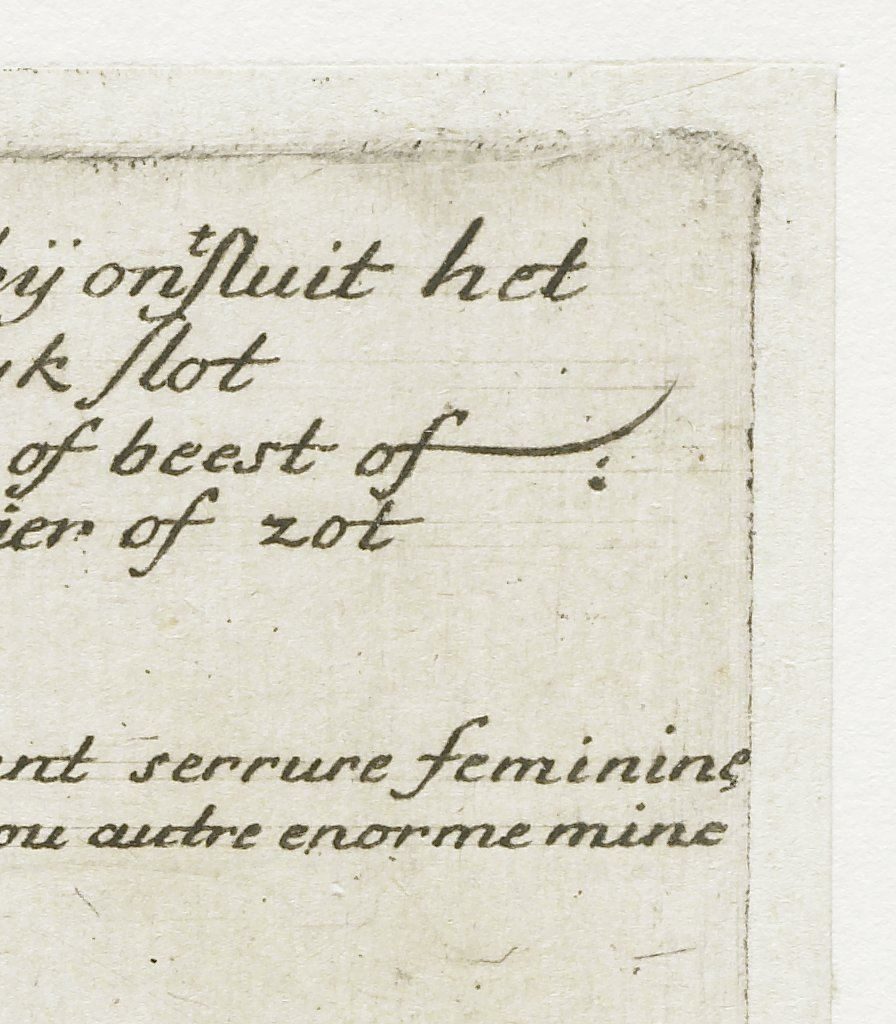 hij onſtluit het
yk ſlot
of beest of
ier of zot
ent serrure feminine
ou autre enorme mine